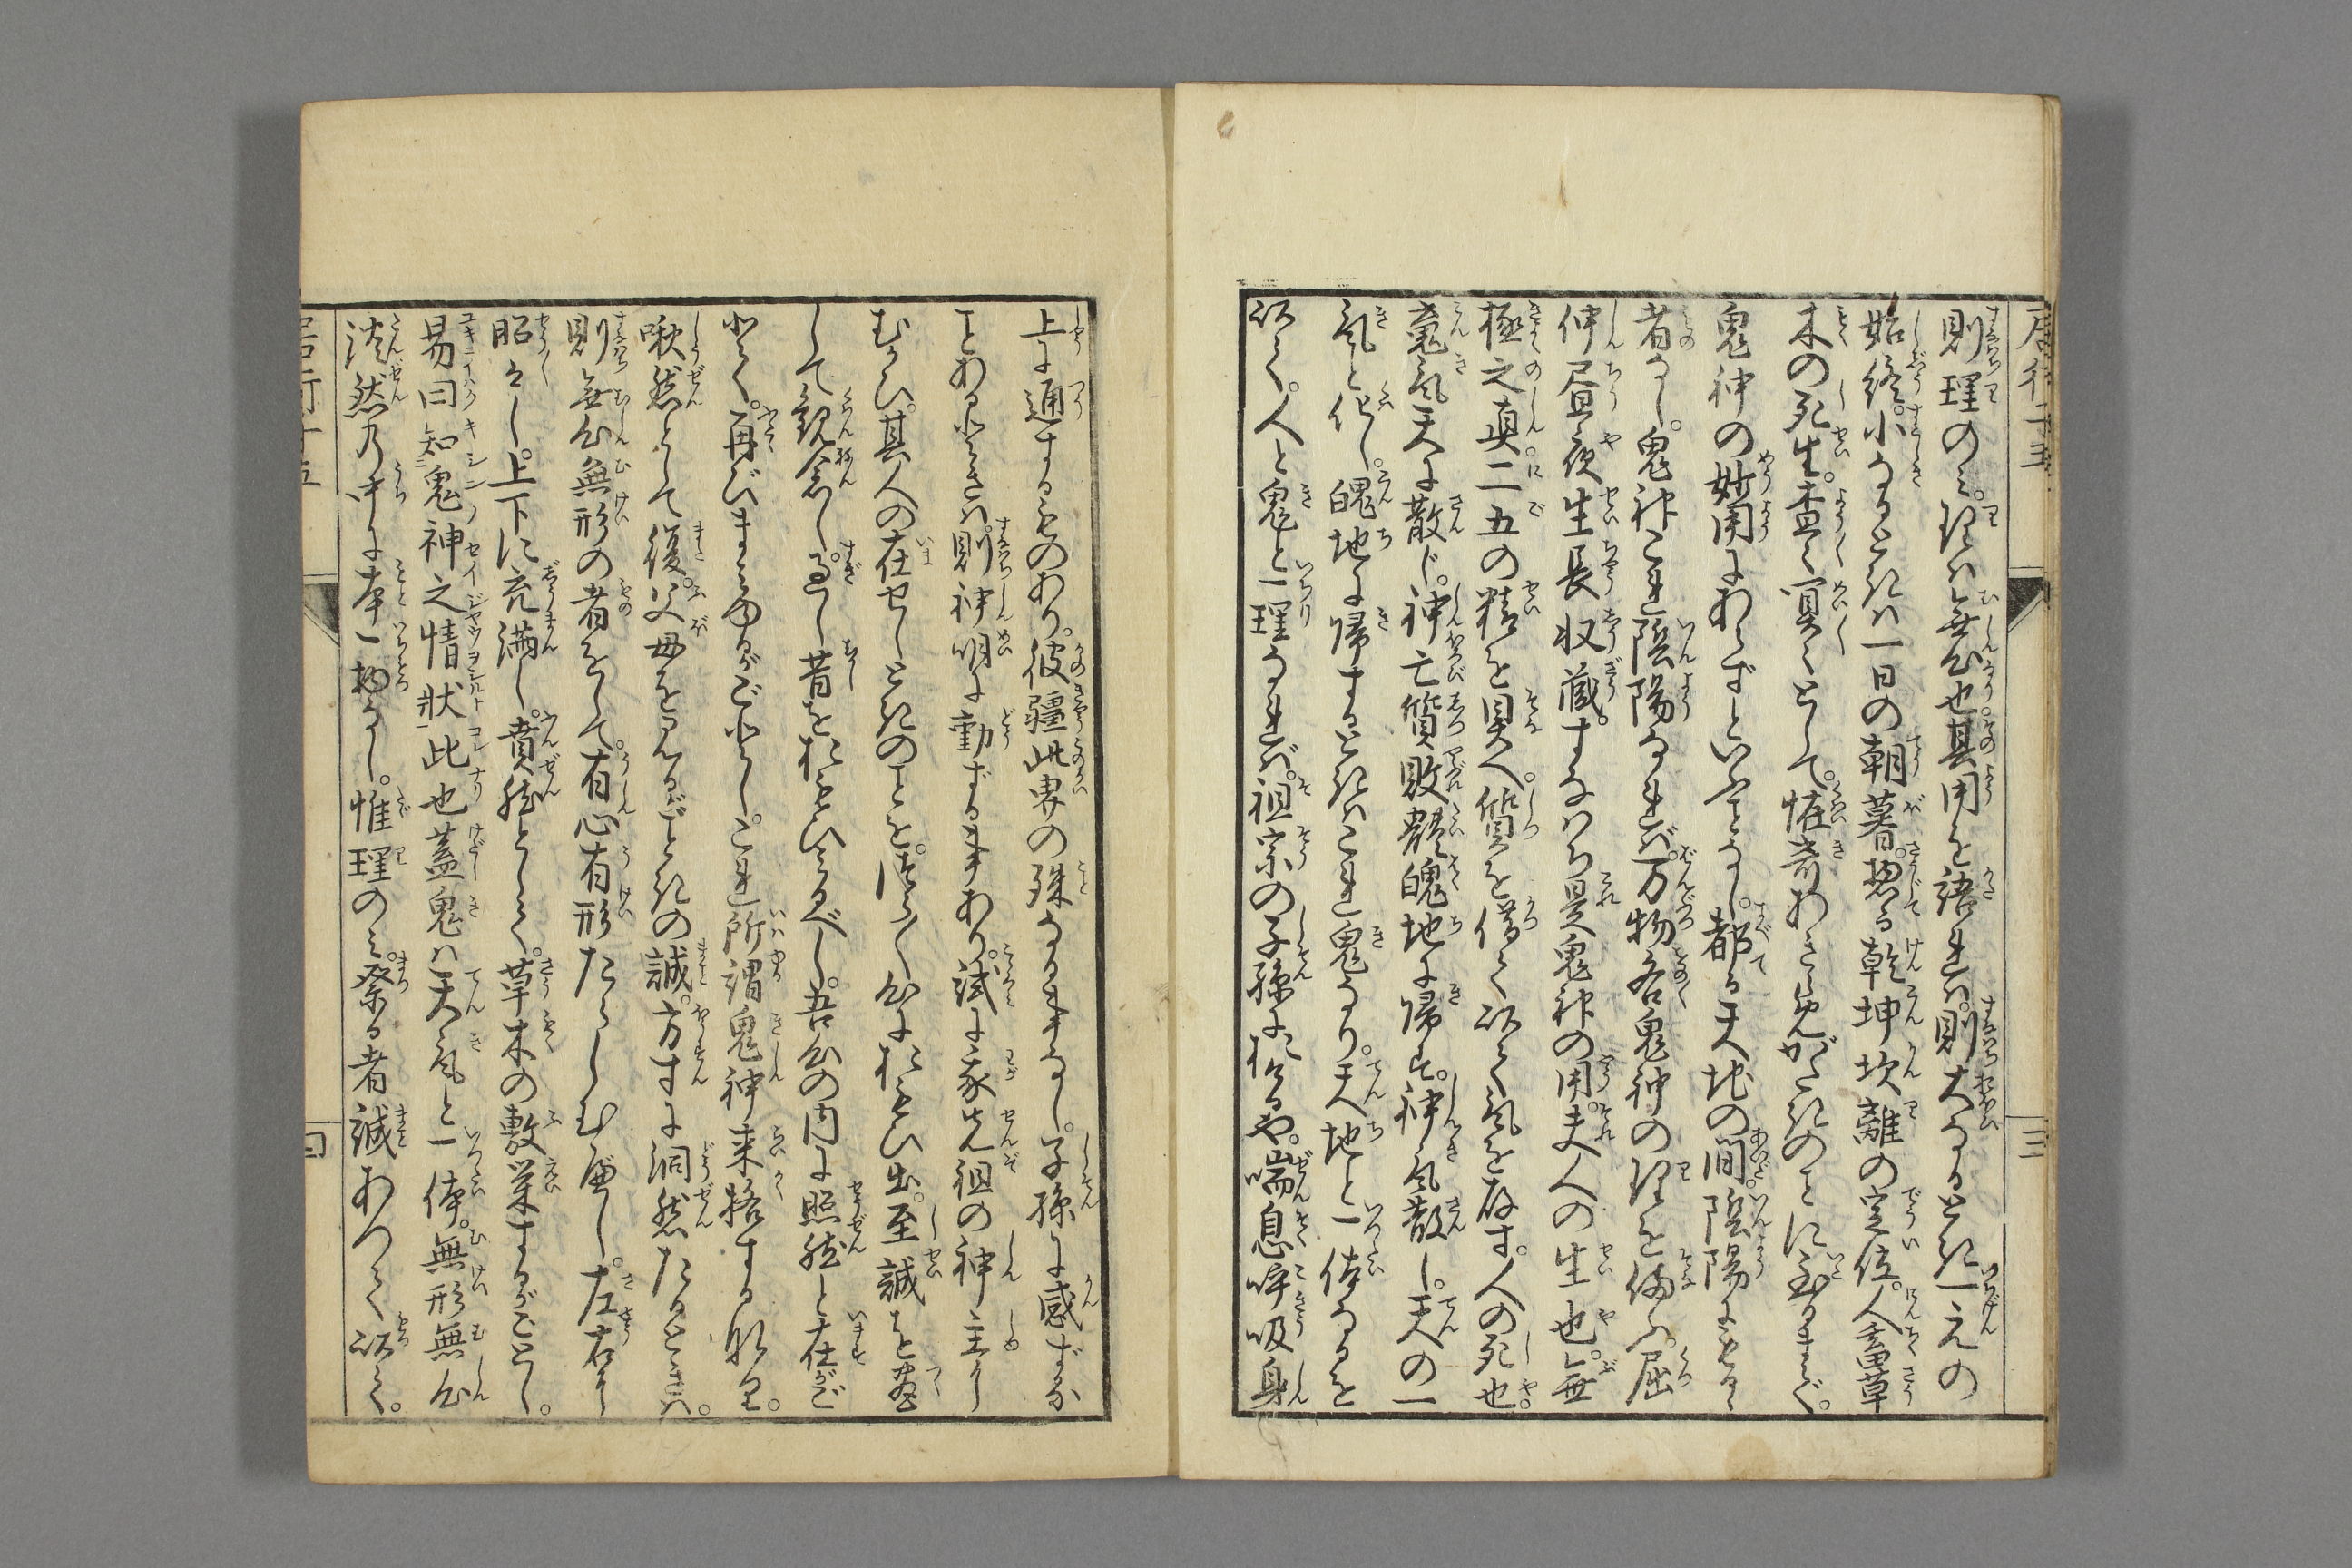 則理のミ。理ハ無心也。其用を語れバ。則大なるときハ一元の
始終。小なるときハ一日の朝暮。惣て乾坤坎離の定位。人畜草
木の死生。杳々冥々として。恠奇あきらめがたきのことに至るまで。
鬼神の妙用にあらずといふことなし。都て天地の間。陰陽にもるゝ
者なし。鬼神これ陰陽なれバ。万物各鬼神の理を備ふ。屈
伸昼夜生長収蔵。すなハち是鬼神の用。夫人の生也。無
極之真。二五の精を具へ。質を借て以て気を存す。人の死也。
䰟気天に散じ。神亡質敗軆魄地に帰す。神気散し。天の一
気と化し。魄地に帰するときハこれ鬼なり。天地と一体なるを
以て。人と鬼と一理なれバ。祖宗の子孫におけるや。喘息呼吸身
上に通するものあり。彼疆此界の殊なる事なし。子孫に感ずる
ことあるときハ。則神明に動ずる事あり。試に我先祖の神主に
むかひ。其人の在せしときのことを。つら〳〵心におもひ出。至誠を尽
して観念し。過し昔をおもひみるべし。吾心の内に照然と在がご
とく。再びまミゆるがごとし。これ所謂鬼神来格する処里。
愀然として復。父母をみるがごときの誠。方寸に洞然たるときハ。
則無心無形の者をして。有心有形たらしむ べし。左右に
昭々し。上下に充満し。賁然として。草木の敷栄するがごとし。
易曰知鬼神之情状此也蓋鬼ハ天気と一体。無形無心
渾然乃中に本一物なし。惟理のミ。祭る者誠あつて以て。
居行子五
三
四